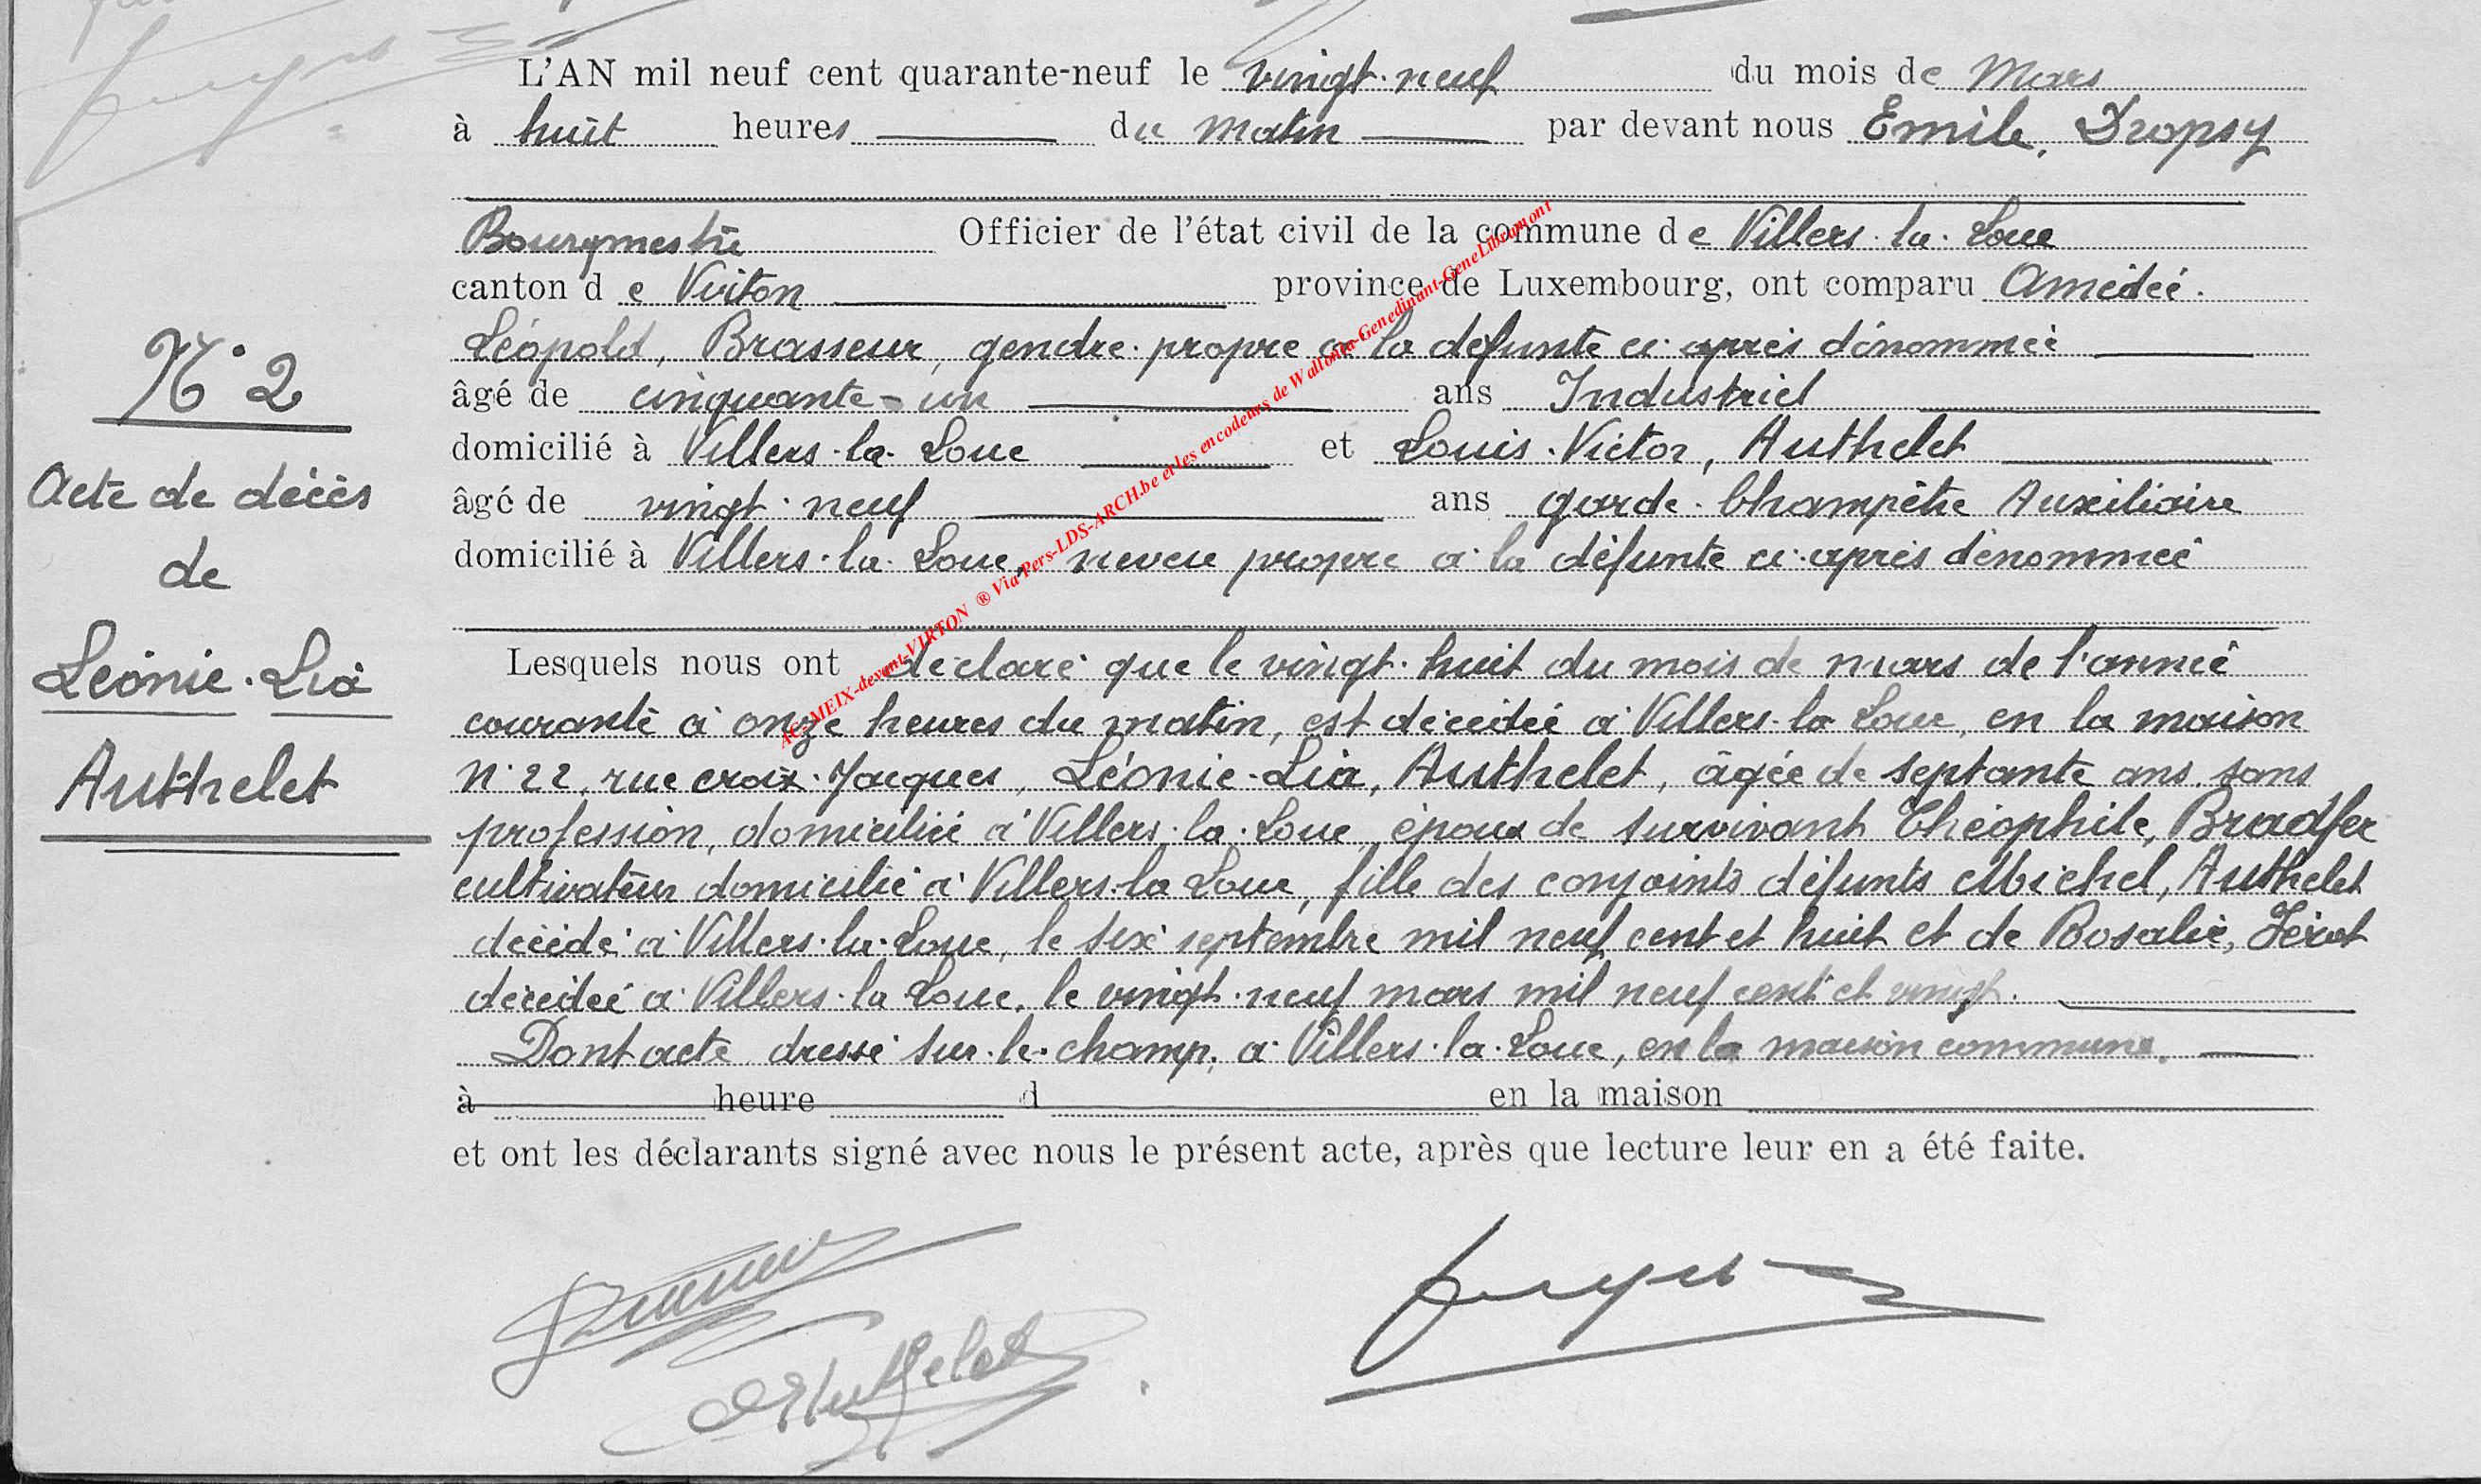 L'AN mil neuf cent quarante-neuf le vingt-neuf du mois de Mars
à huit heures du matin par devant nous Emile, Dropsy
Bourgmestre Officier de l'état civil de la commune de Villers-la-Loue
canton de Virton province de Luxembourg, ont comparu Amédée
Léopold, Brasseur, gendre propre à la défunte ci-après dénommée
N° 2
âgé de cinquante-un ans Industriel
domicilié à Villers-la-Loue et Louis-Victor, Authelet
Acte de décès
âgé de vingt-neuf ans garde-Champêtre Auxiliaire
de
domicilié à Villers-la-Loue, neveu propre à la défunte ci-après dénommée
Léonie-Lia
Lesquels nous ont déclaré que le vingt-huit du mois de mars de l'année
courante à onze heures du matin, est décédée à Villers-la-Loue, en la maison
Authelet
n° 22, rue croix-Jacques, Léonie-Lia, Authelet, âgée de septante ans, sans
profession, domiciliée à Villers-la-Loue, épouse de survivant Théophile, Bradfer
cultivateur domicilié à Villers-la-Loue, fille des conjoints défunts Michel, Authelet
décédé à Villers-la-Loue, le six septembre mil neuf cent et huit et de Rosalie,
décédée à Villers-la-Loue, le vingt-neuf mars mil neuf cent et vingt.
Dont acte dressé sur-le-champ, à Villers-la-Loue, en la maison commune.
à heure d en la maison
et ont les déclarants signé avec nous le présent acte, après que lecture leur en a été faite.
Authelet
AC-MEIX-devant-VIRTON ® Via Pers-LDS-ARCH.be et les encodeurs de Wallonia-Genedinant-GeneLibramont